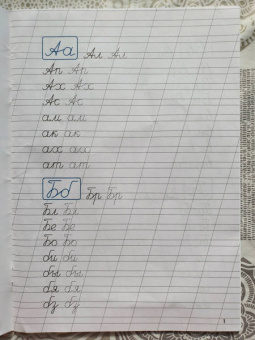 Аа Ал Ал
Ап Ап
Ах Ах
Ас Ас
ам ам
ак ак
ах ах
ат ат
Бб Бр Бр
Бл Бл
Бе Бе
Бо Бо
би би
бы бы
бя бя
бз бз
1